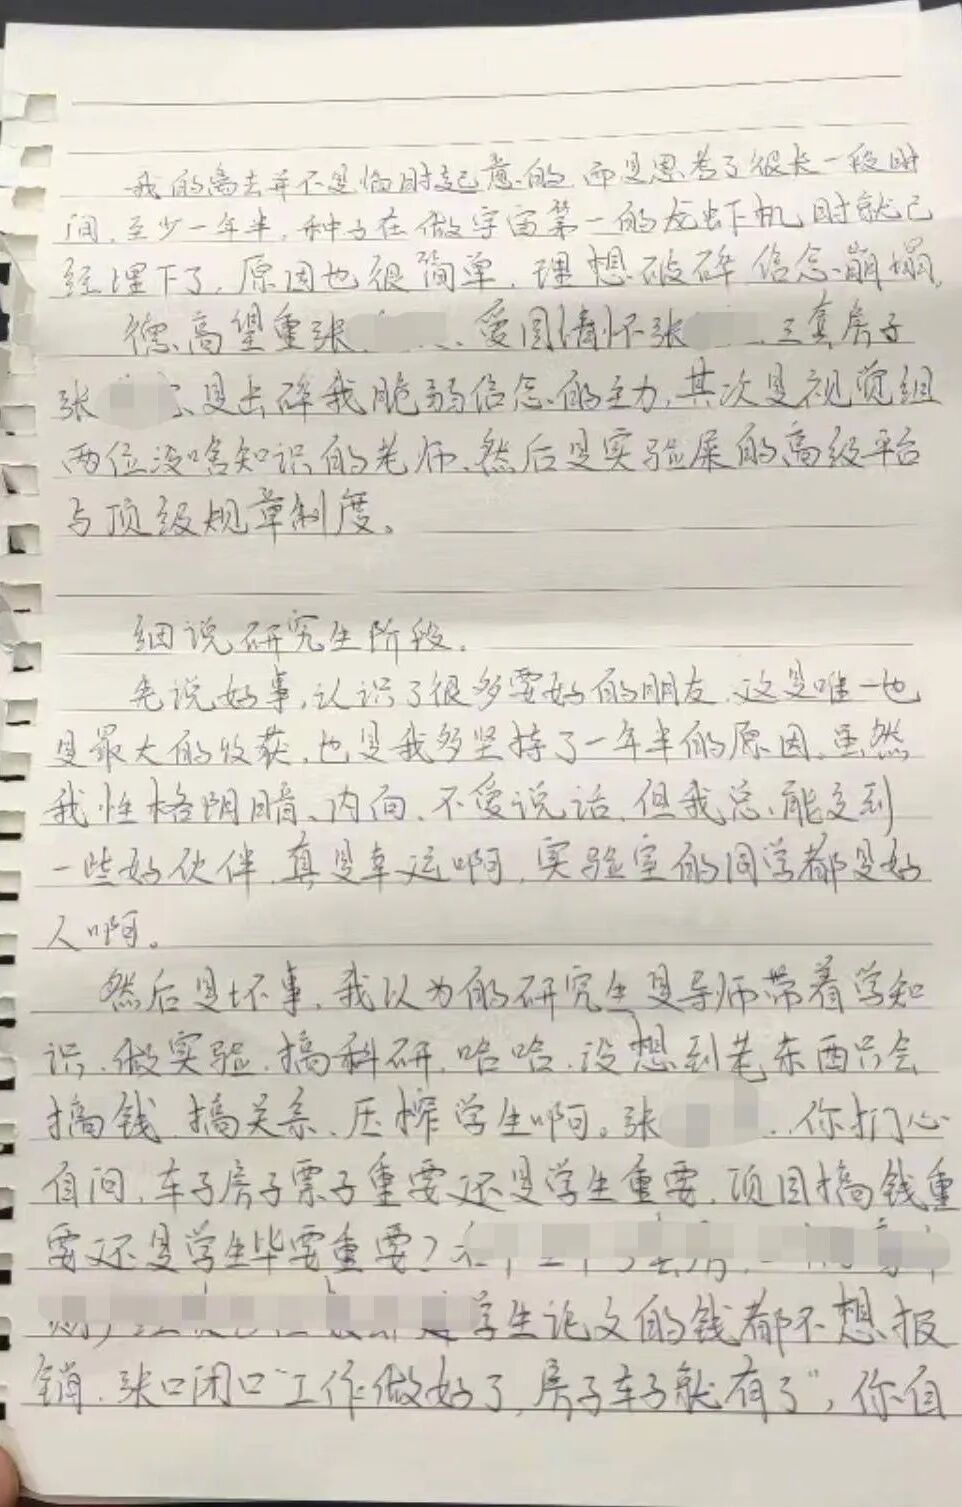 我的离去并不是临时起意的,而是思考了很长一段时
间,至少一年半,种子在做宇宙第一的龙虾机时就已
经埋下了,原因也很简单,理想破碎 信念崩塌,
德高望重张 爱国情怀张 三套房子
张 是击碎我脆弱信念的主力,其次是视觉组
两位没啥知识的老师、然后是实验屎的高级平台
与顶级规章制度。
细说研究生阶段.
先说好事,认识了很多要好的朋友,这是唯一也
是最大的收获,也是我多坚持了一年半的原因,虽然
我性格阴暗、内向、不爱说话,但我总能交到
一些好伙伴,真是幸运啊,实验室的同学都是好
人啊。
然后是坏事,我以为的研究生是导师带着学知
识、做实验、搞科研,哈哈,没想到老东西只会
搞钱、搞关系、压榨学生啊。张 你扪心
自问,车子房子票子重要还是学生重要,项目搞钱重
要还是学生毕要重要?
学生论文的钱都不想报
销,张口闭口“工作做好了,房子车子就有了”,你自